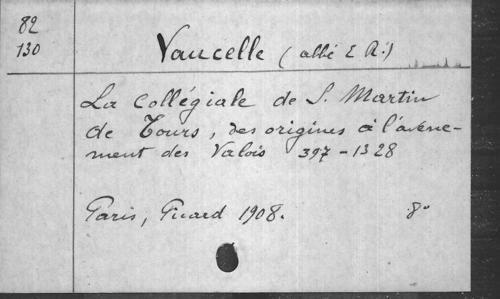 82
130
Vaucelle (abbé E R.)
La Collégiale de S. Martin
de Tours, des origines à l'avène-
ment des Valois 397-1328
Paris, Picard 1908. 8°